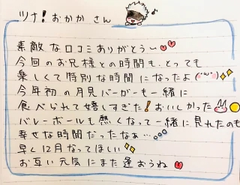 ツナ!おかか さん
素敵な口コミありがとう〜
今回のお兄様との時間も、とっても
楽しくて特別な時間になったよ(^^)
今年初の月見バーガーも一緒に
食べられて嬉しすぎた!おいしかった
バレーボールも熱くなって一緒に見れたのも
幸せな時間だったなぁ…
早く12月なってほしい
お互い元気にまた逢おうね♡